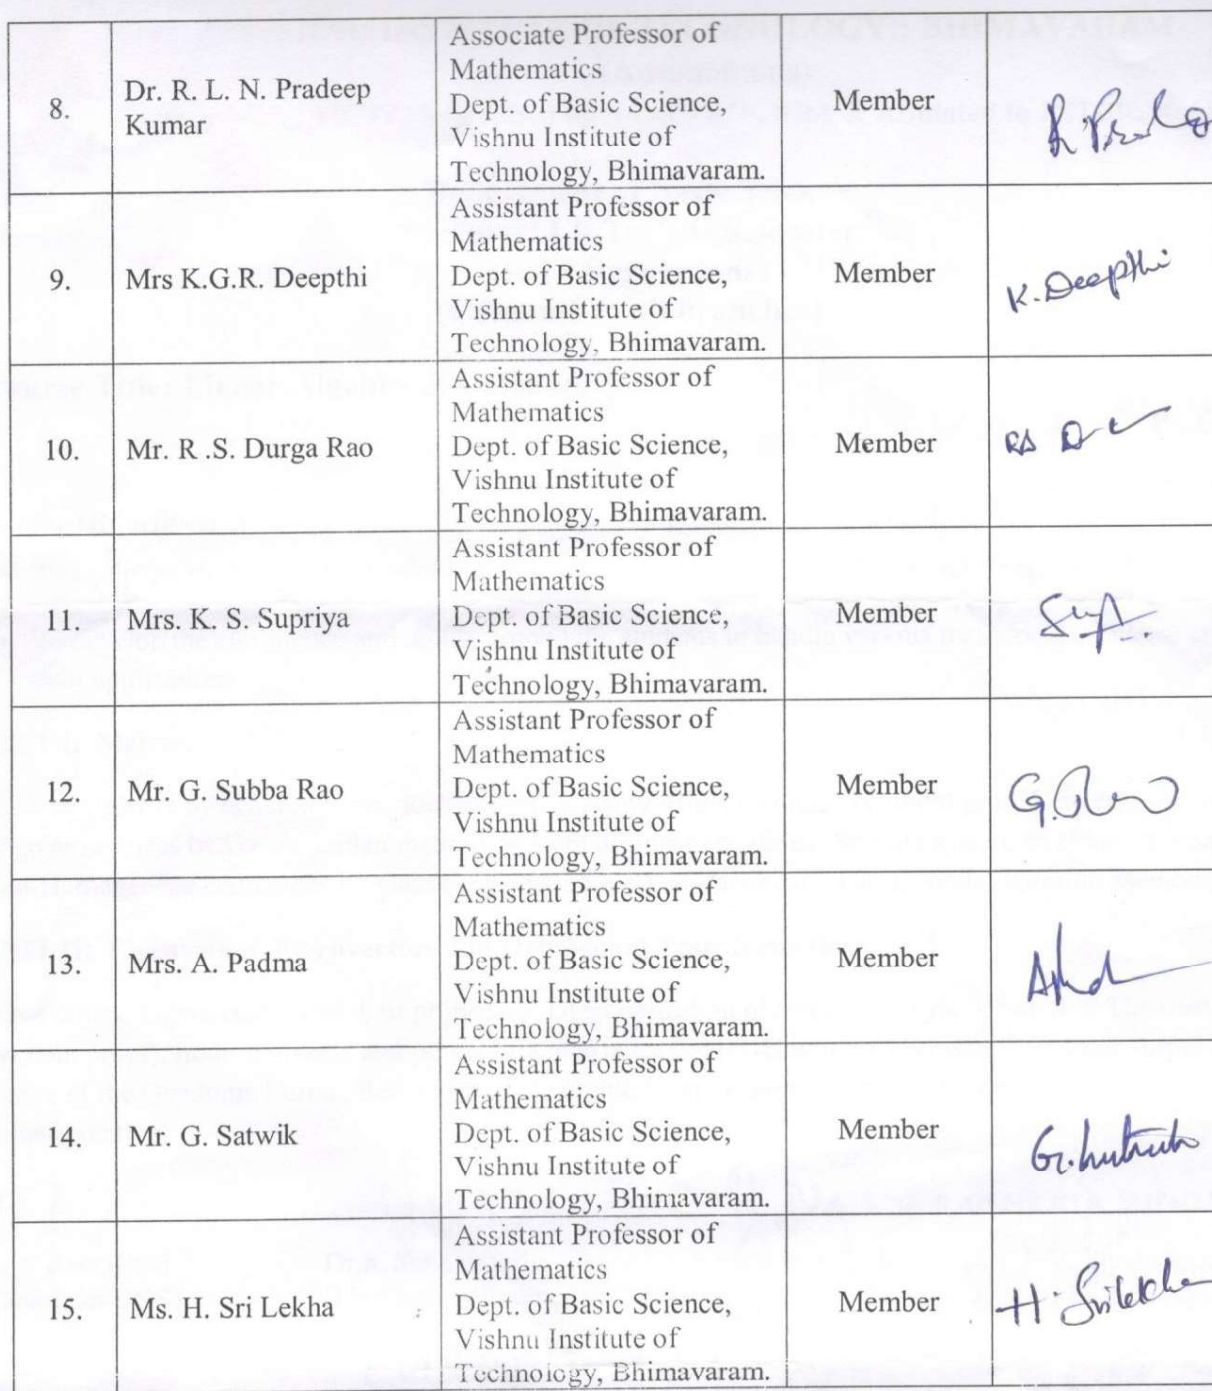 8.
Dr. R. L. N. Pradeep
Kumar
Associate Professor of
Mathematics
Dept. of Basic Science,
Vishnu Institute of
Technology, Bhimavaram.
Member
9.
Mrs K.G.R. Deepthi
Assistant Professor of
Mathematics
Dept. of Basic Science,
Vishnu Institute of
Technology, Bhimavaram.
Member
K. Deepthi
10.
Mr. R .S. Durga Rao
Assistant Professor of
Mathematics
Dept. of Basic Science,
Vishnu Institute of
Technology, Bhimavaram.
Member
11.
Mrs. K. S. Supriya
Assistant Professor of
Mathematics
Dept. of Basic Science,
Vishnu Institute of
Technology, Bhimavaram.
Member
12.
Mr. G. Subba Rao
Assistant Professor of
Mathematics
Dept. of Basic Science,
Vishnu Institute of
Technology, Bhimavaram.
Member
13.
Mrs. A. Padma
Assistant Professor of
Mathematics
Dept. of Basic Science,
Vishnu Institute of
Technology, Bhimavaram.
Member
14.
Mr. G. Satwik
Assistant Professor of
Mathematics
Dept. of Basic Science,
Vishnu Institute of
Technology, Bhimavaram.
Member
15.
Ms. H. Sri Lekha
Assistant Professor of
Mathematics
Dept. of Basic Science,
Vishnu Institute of
Technology, Bhimavaram.
Member
H. Srilekha